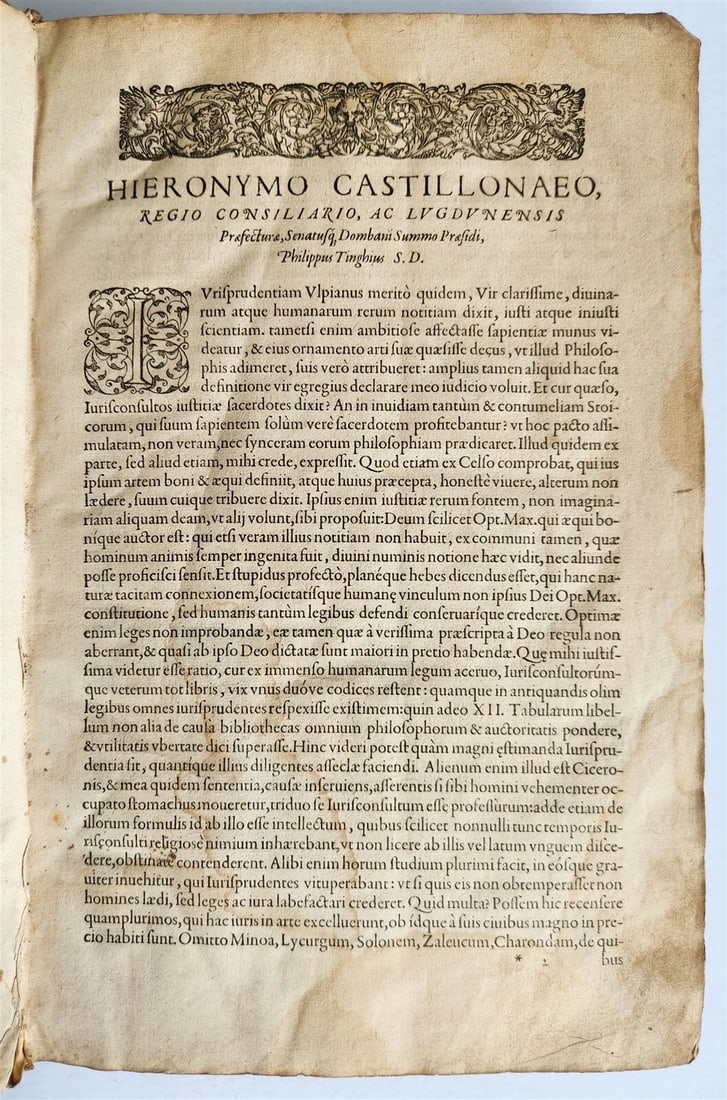 HIERONYMO CASTILLONAEO,
REGIO CONSILIARIO, AC LVGDVNENSIS
Præfecturæ, Senatusq́; Dombani Summo Præsidi,
Philippus Tinghius S. D.
IVriſprudentiam Vlpianus meritò quidem, Vir clariſſime, diuina-
rum atque humanarum rerum notitiam dixit, iuſti atque iniuſti
ſcientiam. tametſi enim ambitioſe affectaſſe ſapientiæ munus vi-
deatur, & eius ornamento arti ſuæ quæſiſſe decus, vt illud Philoſo-
phis adimeret, ſuis verò attribueret: amplius tamen aliquid hac ſua
definitione vir egregius declarare meo iudicio voluit. Et cur quæſo,
Iuriſconſultos iuſtitiæ ſacerdotes dixit? An in inuidiam tantùm & contumeliam Stoi-
corum, qui ſuum ſapientem ſolùm verè ſacerdotem profitebantur? vt hoc pacto aſſi-
mulatam, non veram, nec ſynceram eorum philoſophiam prædicaret. Illud quidem ex
parte, ſed aliud etiam, mihi crede, expreſſit. Quod etiam ex Celſo comprobat, qui ius
ipſum artem boni & æqui definiit, atque huius præcepta, honeſtè viuere, alterum non
lædere, ſuum cuique tribuere dixit. Ipſius enim iuſtitiæ rerum fontem, non imagina-
riam aliquam deam, vt alij volunt, ſibi propoſuit: Deum ſcilicet Opt. Max. qui æqui bo-
níque auctor eſt: qui etſi veram illius notitiam non habuit, ex communi tamen, quæ
hominum animis ſemper ingenita fuit, diuini numinis notione hæc vidit, nec aliunde
poſſe proficiſci ſenſit. Et ſtupidus profectò, planéque hebes dicendus eſſet, qui hanc na-
turæ tacitam connexionem, ſocietatíſque humanę vinculum non ipſius Dei Opt. Max.
conſtitutione, ſed humanis tantùm legibus defendi conſeruaríque crederet. Optimæ
enim leges non improbandæ, eæ tamen quæ à veriſſima præſcripta à Deo regula non
aberrant, & quaſi ab ipſo Deo dictatæ ſunt maiori in pretio habendæ. Quę mihi iuſtiſ-
ſima videtur eſſe ratio, cur ex immenſo humanarum legum aceruo, Iuriſconſultorúm-
que veterum tot libris, vix vnus duóve codices reſtent: quamque in antiquandis olim
legibus omnes iuriſprudentes reſpexiſſe exiſtimem: quin adeo XII. Tabularum libel-
lum non alia de cauſa bibliothecas omnium philoſophorum & auctoritatis pondere,
& vtilitatis vbertate dici ſuperaſſe. Hinc videri poteſt quàm magni ęſtimanda Iuriſpru-
dentia ſit, quantíque illius diligentes aſſeclæ faciendi. Alienum enim illud eſt Cicero-
nis, & mea quidem ſententia, cauſæ inſeruiens, aſſerentis ſi ſibi homini vehementer oc-
cupato ſtomachus moueretur, triduo ſe Iuriſconſultum eſſe profeſſurum: adde etiam de
illorum formulis id ab illo eſſe intellectum, quibus ſcilicet nonnulli tunc temporis Iu-
riſconſulti religioſè nimium inhærebant, vt non licere ab illis vel latum vnguem diſce-
dere, obſtinatè contenderent. Alibi enim horum ſtudium plurimi facit, in eóſque gra-
uiter inuehitur, qui Iuriſprudentes vituperabant: vt ſi quis eis non obtemperaſſet non
homines lædi, ſed leges ac iura labefactari crederet. Quid multa? Poſſem hic recenſere
quamplurimos, qui hac iuris in arte excelluerunt, ob idque à ſuis ciuibus magno in pre-
cio habiti ſunt. Omitto Minoa, Lycurgum, Solonem, Zaleucum, Charondam, de qui-
* 2 bus